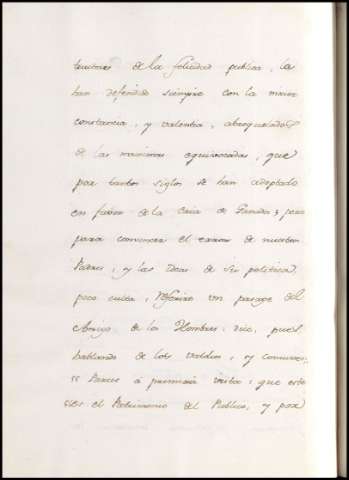 tectores de la felicidad publica, los
han defendido siempre con la mayor
constancia, y valentia, abroquelados
de las maximas equivocadas, que
por tantos siglos se han adoptado
en favor de la Cria de Ganados; pero
para convencer el error de nuestros
Padres, y las ideas de su politica
poco culta, referiré un pasage del
Amigo de los Hombres: dice, pues
hablando de los valdios, y comunes:
Parece á primera vista, que este
es el Patrimonio del Publico, y por